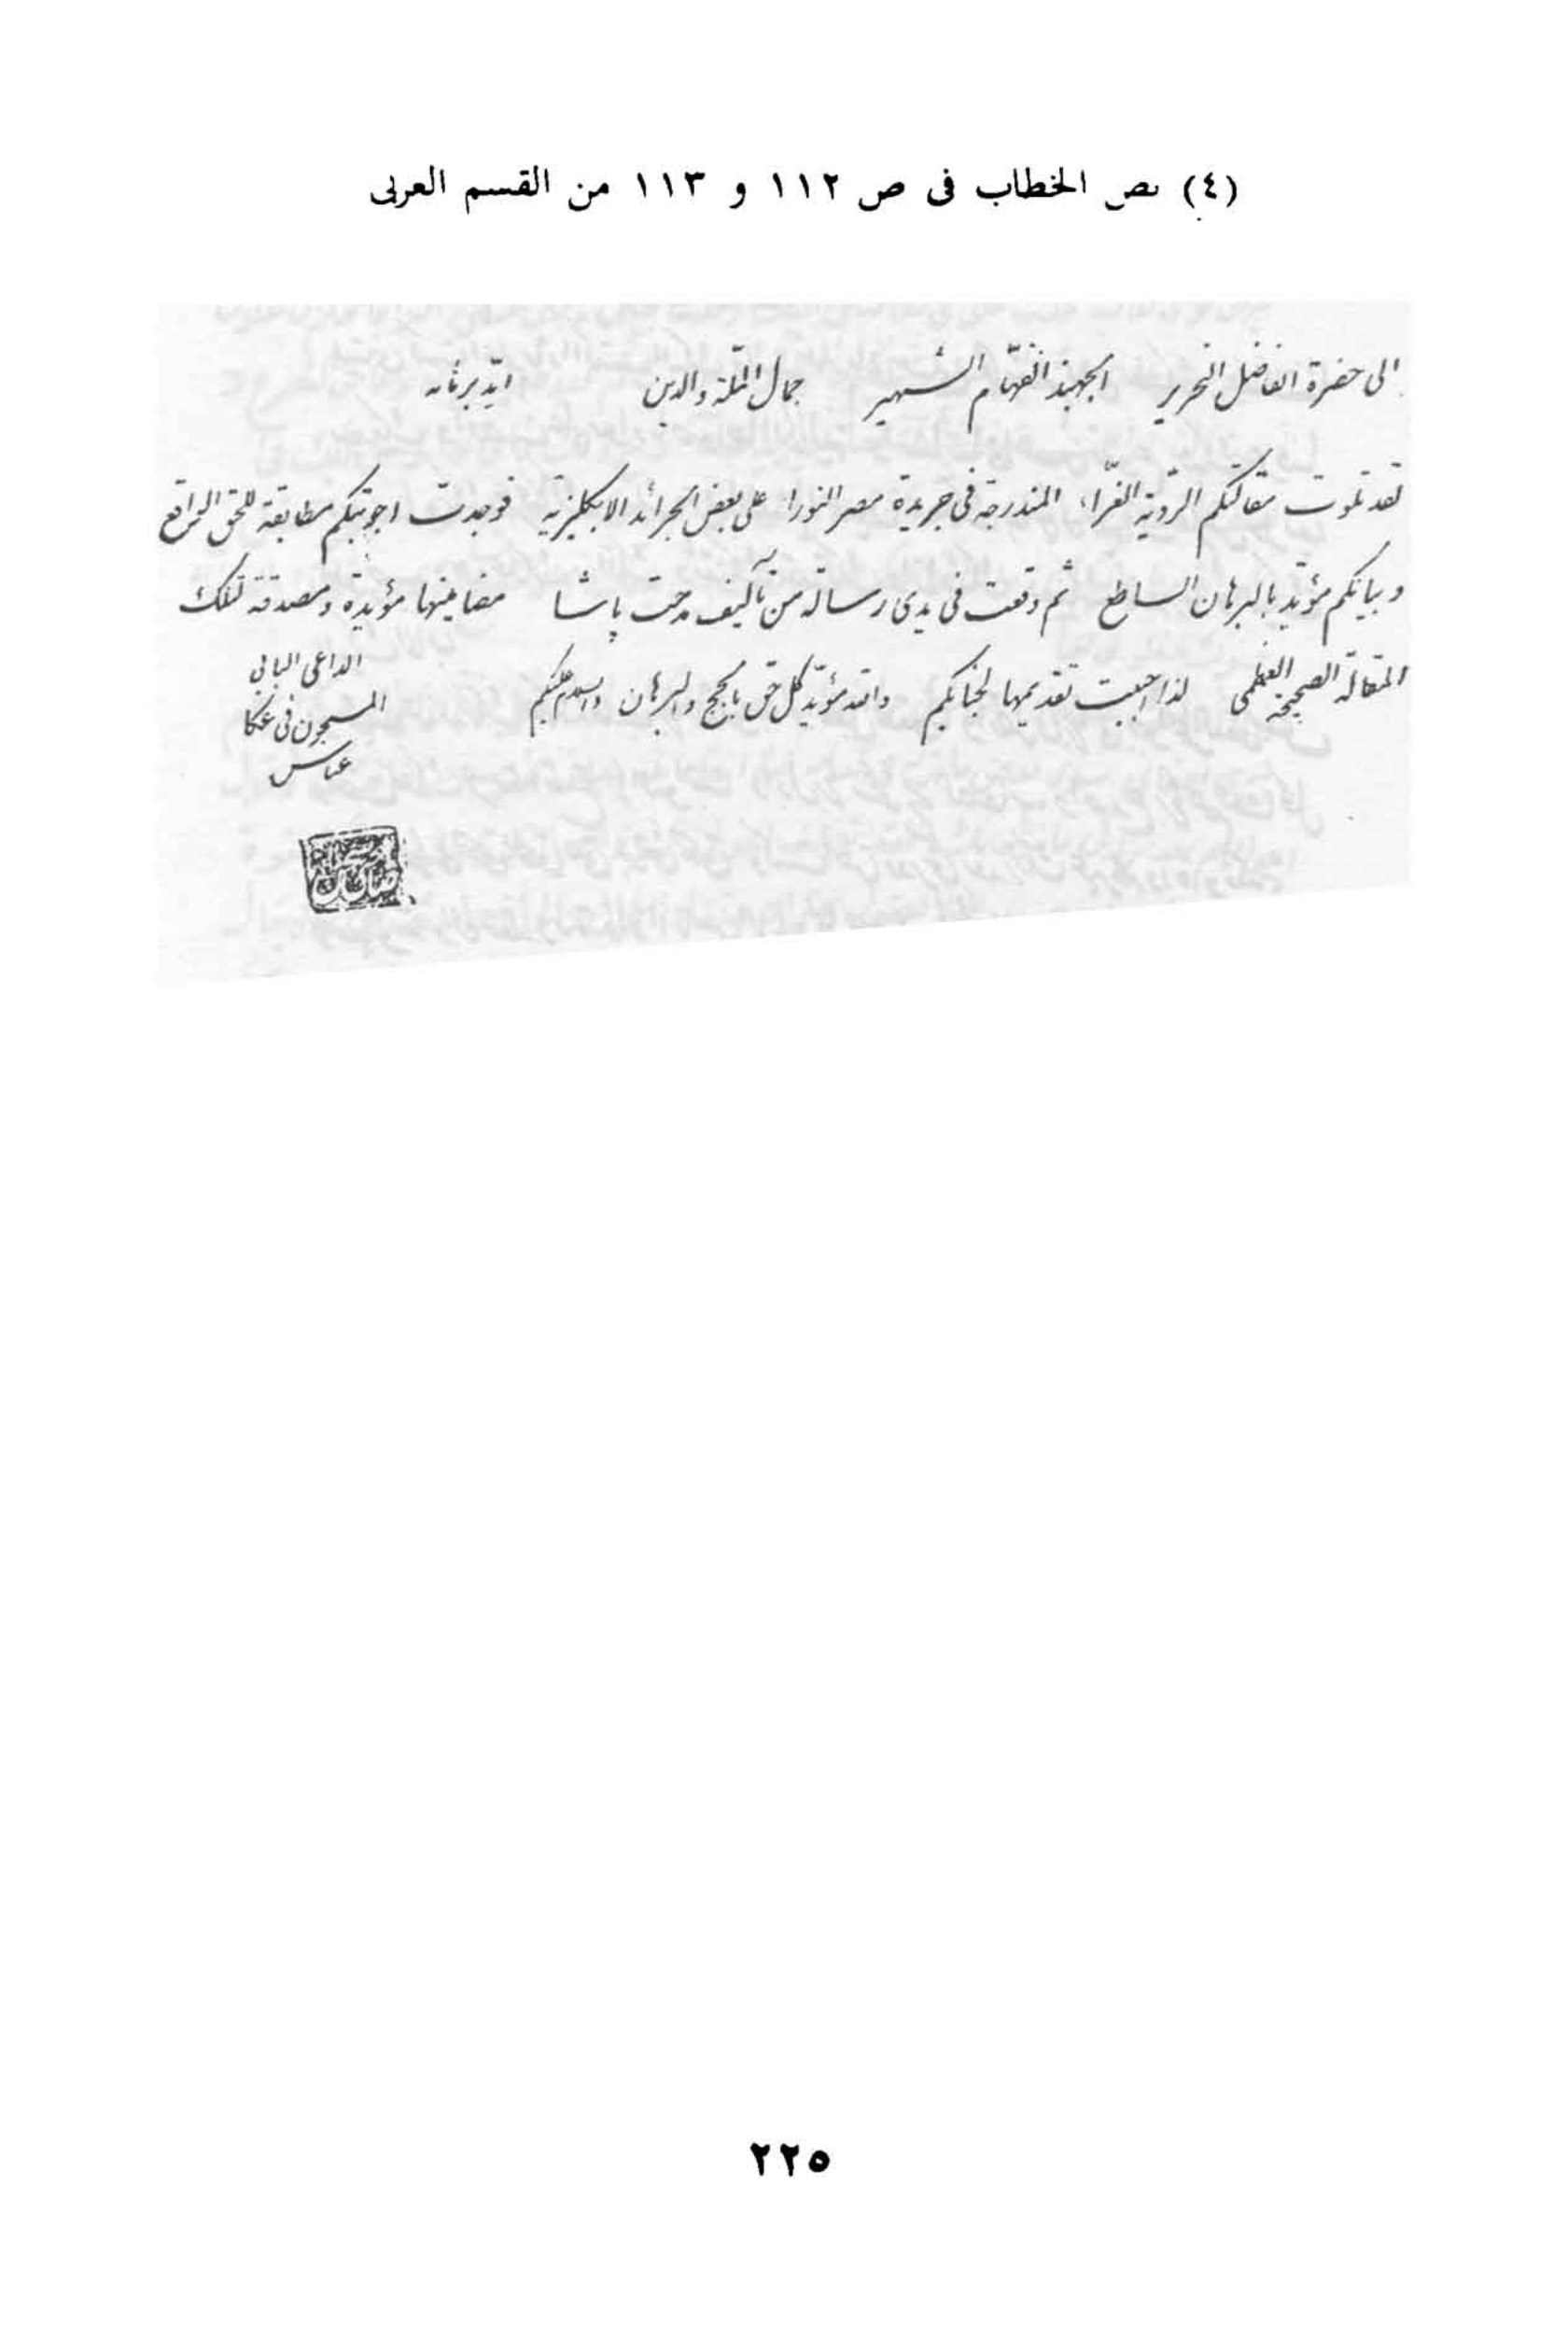 (٤) نص الخطاب فى ص ١١٢ و ١١٣ من القسم العربى
الى حضرة الفاضل النحرير الجهبذ الفهّام الشهير جمال الملّة والدين ايّد برهانه
لقد تلوت مقالتكم الغرّاء المندرجة فى جريدة مصر النوراء على بعض الجرائد الانكليزية فوجدت اجوبتكم مطابقة للحق الواقع
وبيانكم مؤيّد بالبرهان الساطع ثم وقعت فى يدى رسالة من تأليف مدحت پاشا مضامينها مؤيدة ومصدقة لتلك
المقالة الصحيحة العظمى لذا احببت تقديمها لجنابكم والله مؤيّد كل حق بالحجج والبرهان والسلام عليكم
الداعى البابى
المسجون فى عكا
عباس
٢٢٥